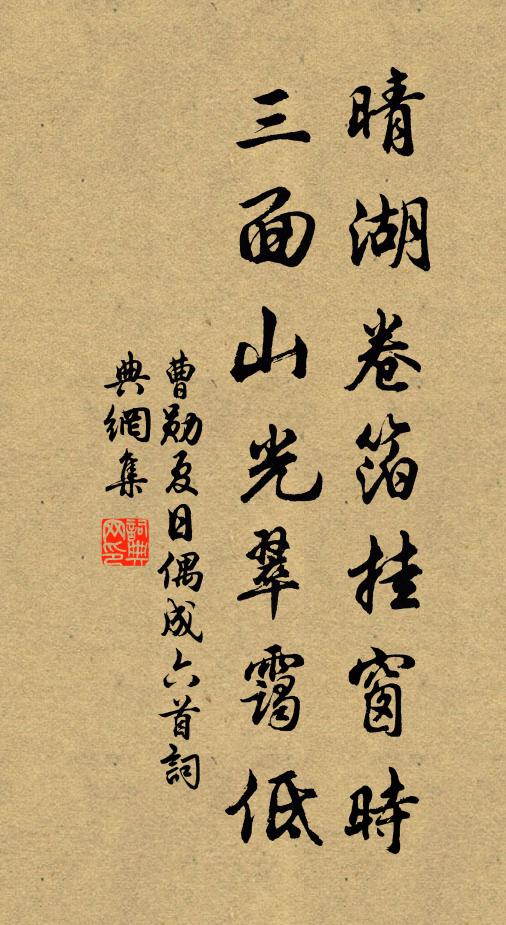 晴湖卷箔挂窗時
三面山光翠靄低
曹勛夏日偶成六首詞
典網集
詞典網印